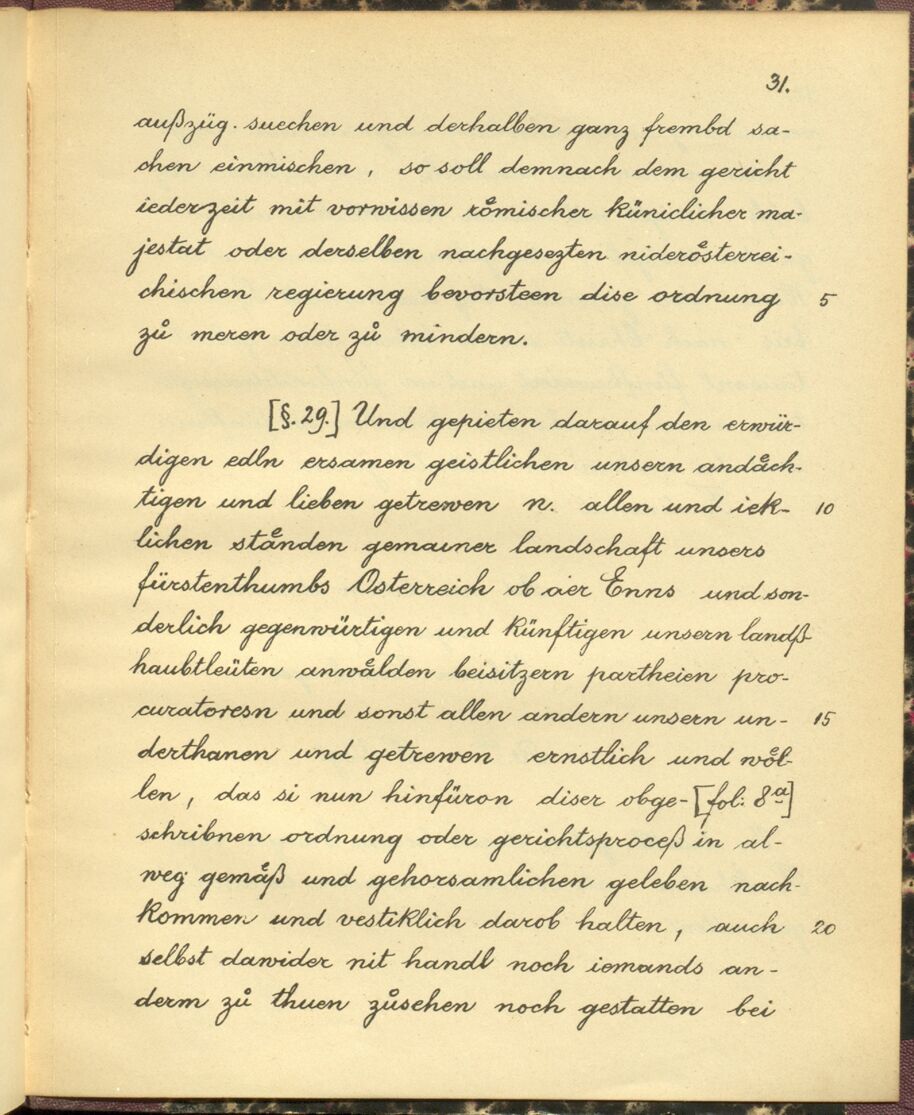 31.
außzüg. suechen und derhalben ganz frembd sa-
chen einmischen, so soll demnach dem gericht
iederzeit mit vorwissen römischer küniclicher ma-
jestat oder derselben nachgesezten niderösterrei-
chischen regierung bevorsteen dise ordnung 5
zů meren oder zů mindern.
[§. 29.] Und gepieten darauf den erwür-
digen edln ersamen geistlichen unsern andåch-
tigen und lieben getrewen n. allen und iek- 10
lichen stånden gemainer landschaft unsers
fürstenthumbs Österreich ob der Enns und son-
derlich gegenwürtigen und künftigen unsern landß-
haubtleüten anwålden beisitzern partheien pro-
curatoresn und sonst allen andern unsern un- 15
derthanen und getrewen ernstlich und wöl-
len, das si nun hinfüron diser obge- [fol: 8a]
schribnen ordnung oder gerichtsproceß in al-
weg gemåß und gehorsamlichen geleben nach-
kommen und vestiklich darob halten, auch 20
selbst dawider nit handl noch iemands an-
derm zů thuen zůsehen noch gestatten bei